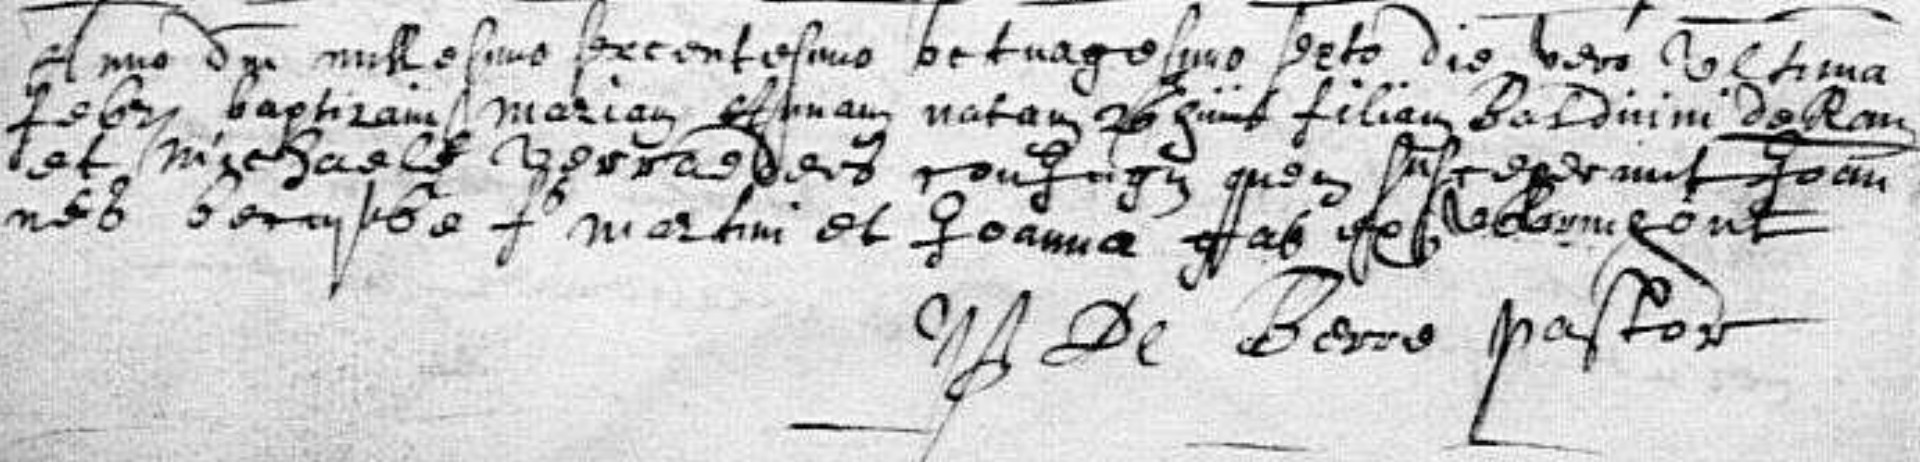 Anno dni millesimo sexcentesimo octuagesimo sexto die vero Ultima
febry baptizavi Mariam Annam natam 26 huius filiam Balduini de Ram
et Michaele Verraeders coniugu quem susceperunt Joan
nes fs Martini et Joanna
De Berre pastor